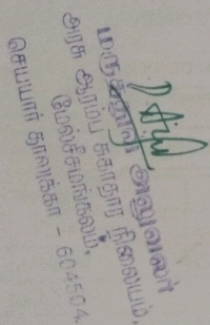 மருத்துவ அலுவலர்
அரசு ஆரம்ப சுகாதார நிலையம்,
மேல்சீசமங்கலம்,
செய்யார் தாலுக்கா - 604504.